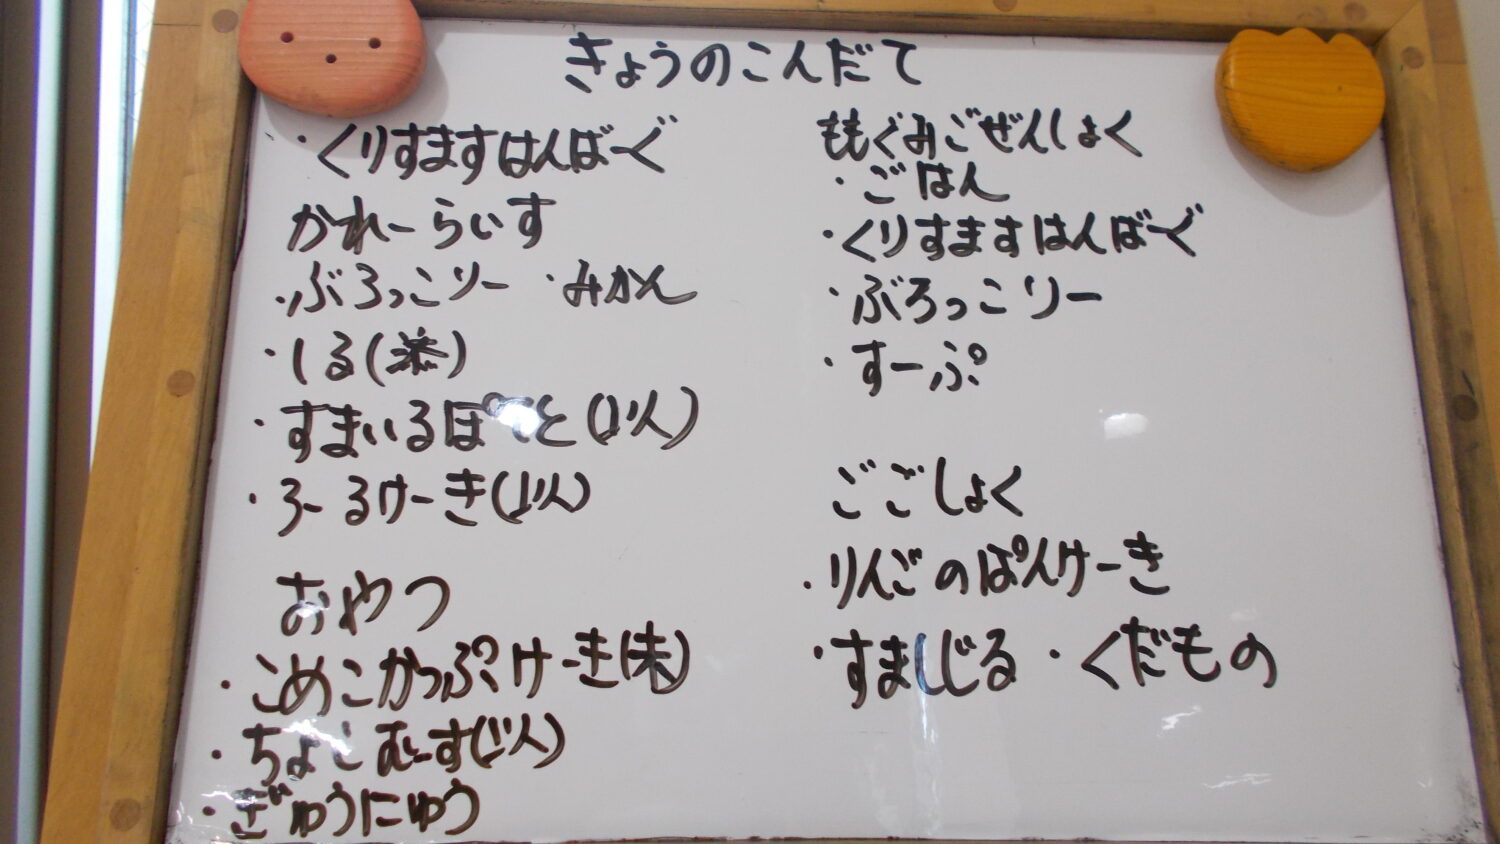 きょうのこんだて
・くりすますはんばーぐ
かれーらいす
・ぶろっこりー ・みかん
・しる(未)
・すまいるぽてと(以)
・ろーるけーき(以)
おやつ
・こめこかっぷけーき(未)
・ちょこむーす(以)
・ぎゅうにゅう
ももぐみごぜんしょく
・ごはん
・くりすますはんばーぐ
・ぶろっこりー
・すーぷ
ごごしょく
・りんごのぱんけーき
・すましじる ・くだもの